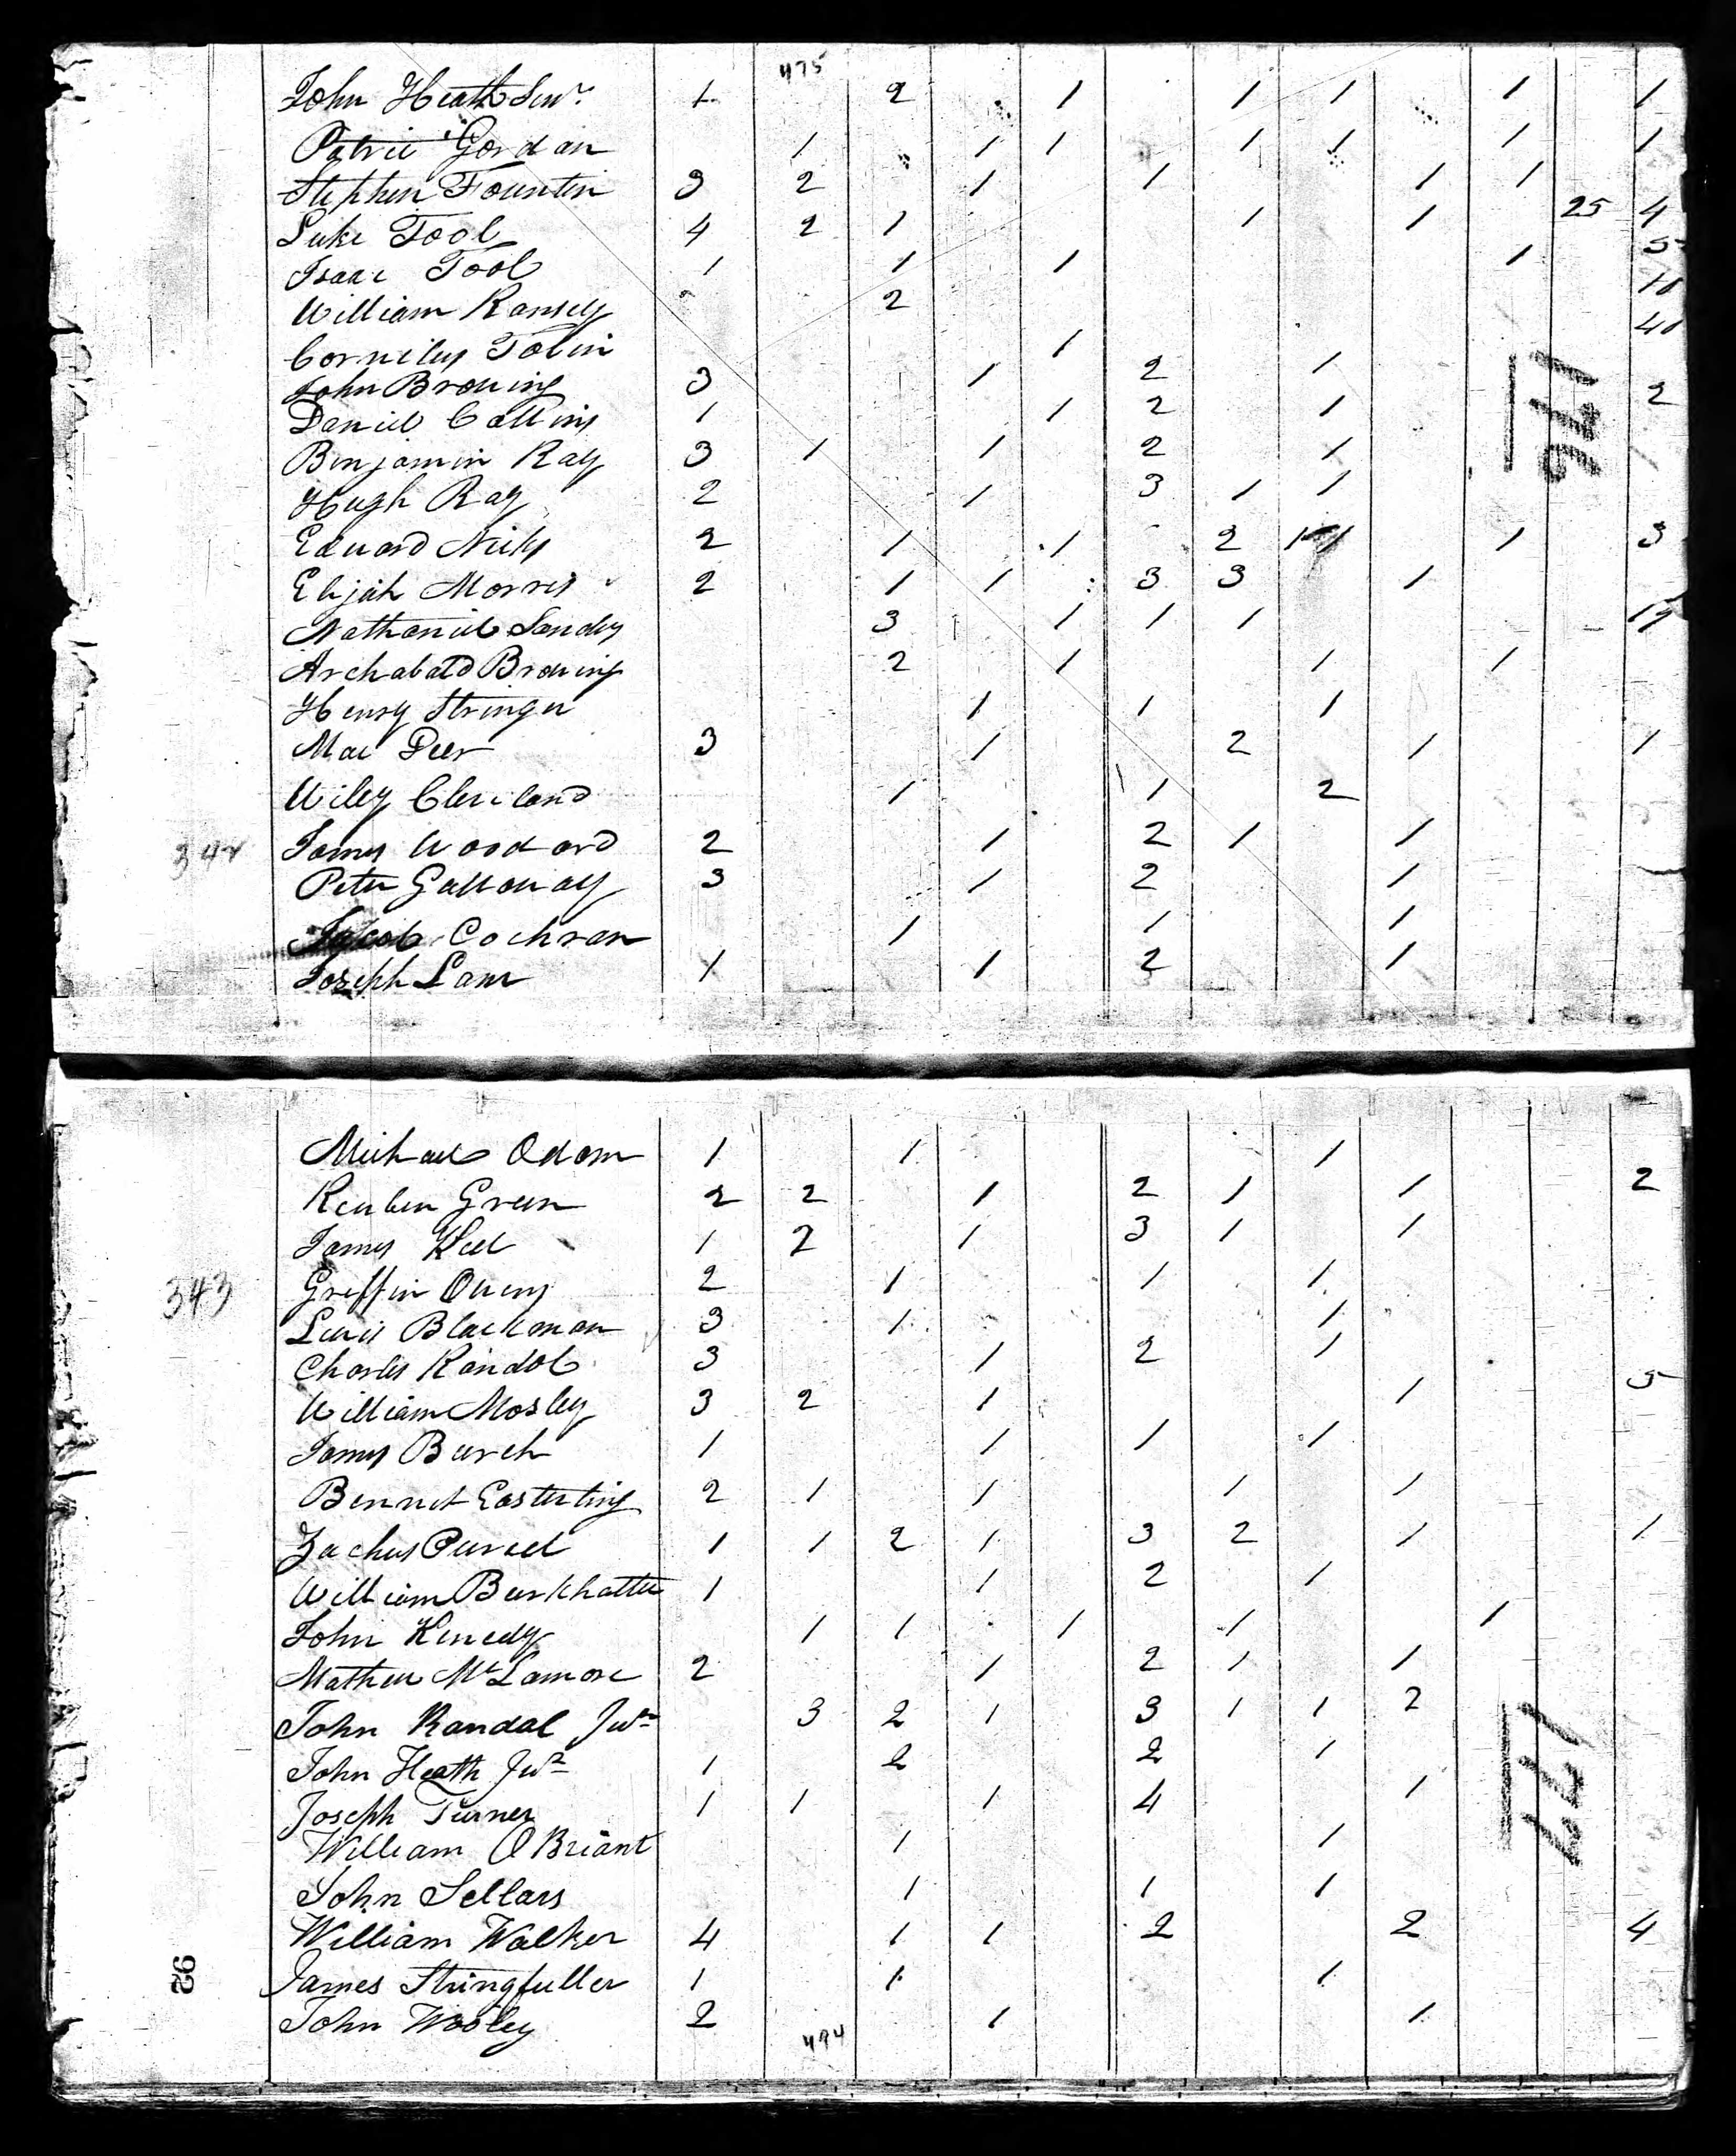 475
John Heath Senr. 1 2 1 1 1 1 1
Patric Gordan 1 1 1 1 1 1 1
Stephen Fountin 3 2 1 1 1 1
Luke Tool 4 2 1 1 1 25 4
Isaac Tool 1 1 1 1 5
William Ramsey 2 10
Cornilus Tobin 1 40
John Browing 3 1 2 1
Daniel Collins 1 1 2 1 2
Benjamin Ray 3 1 1 2 1
Hugh Ray 2 1 3 1 1
Eduard Nicks 2 1 1 2 1 1 3
Elijah Morris 2 1 1 3 3 1
Nathaniel Sandes 3 1 1 1 17
Archabald Browing 2 1 1 1
Henry Stringer 1 1 1
Mac Deer 3 1 2 1 1
Wiley Cleveland 1 1 2
342 James Woodard 2 1 2 1 1
Peter Galloway 3 1 2 1
Jacob Cochran 1 1 1
Joseph Lam 1 1 2 1
176
Michael Odom 1 1 1
Reuben Green 2 2 1 2 1 1 2
James Keel 1 2 1 3 1 1
343 Griffin Ouens 2 1 1 1
Lewis Blackman 3 1 1
Charles Randol 3 1 2 1
William Mosley 3 2 1 1 5
James Burch 1 1 1 1
Bennet Easterling 2 1 1 1 1
Zachus Purcel 1 1 2 1 3 2 1 1
William Burkhatter 1 1 2 1
John Kenedy 1 1 1 1 1
Mathew McLamore 2 1 2 1 1
John Randal Junr 3 2 1 3 1 1 2
John Heath Junr 1 2 2 1
Joseph Turner 1 1 1 4 1
William OBriant 1 1
John Sellars 1 1 1
William Walker 4 1 1 2 2 4
James Stringfuller 1 1 1
John Wooley 2 1 1
177
92
494